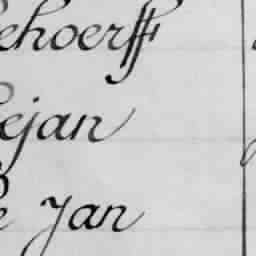 ehoerff
ejan
e Jan